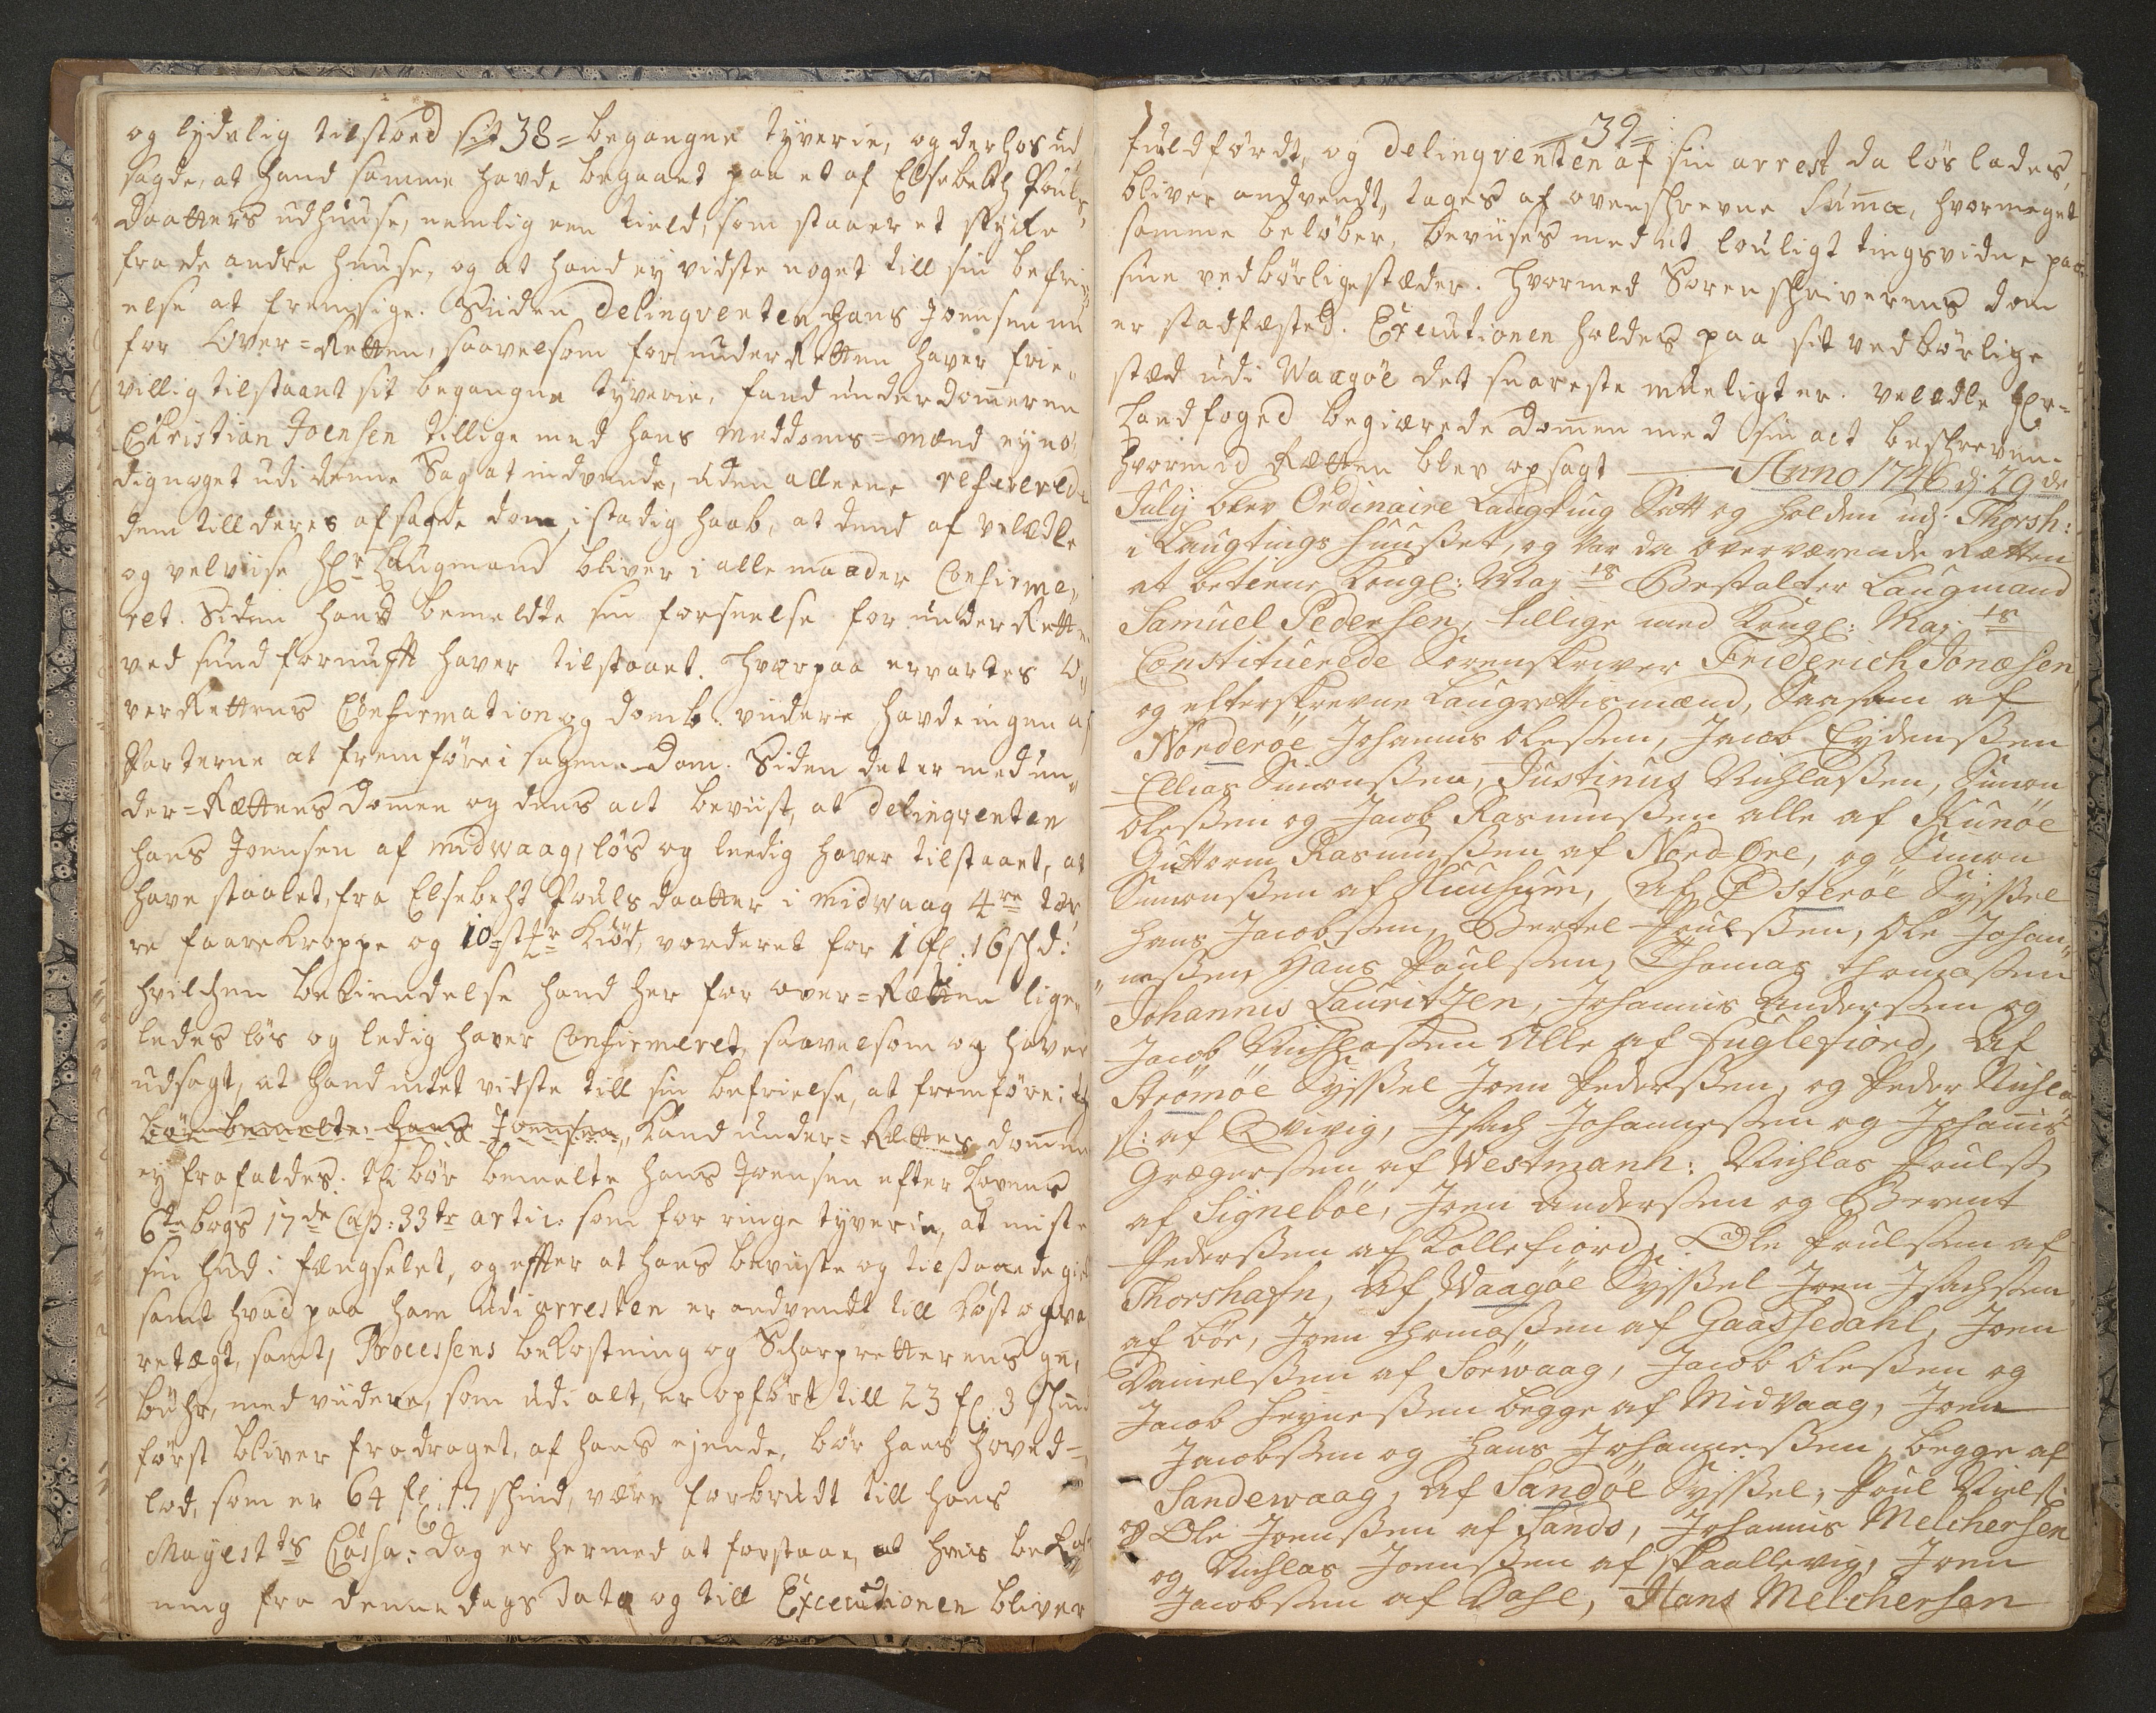 38
og lydelig tilstoed sit begangne tyverie, og derhos ud
sagde, at hand samme havde begaaet paa et af Elsebetth Pouls
daatters udhuuse, nemlig een kield, som staaer et stycke
fra de andre huuse, og at hand ey vidste noget till sin befri
else at fremsige. Siiden Delinqventen Hans Joensen nu
for Over=Retten, saavelsom for under Retten haver frie
villig tilstaaet sit begangne tyverie, fand underdommeren
Christian Joensen tillige med hans meddoms=mænd ey nø
dig noget udi denne Sag at indvende, uden alleene refererede
dem till deres afsagde dom, i stadig haab, at dend af velædle
og velviise Hr Laugmand bliver i alle maader Confirme
ret. Siden hand bemeldte sin forseelse for under Retten
ved sund fornufft haver tilstaaet. Hvorpaa ervartes O
ver Rettens Confirmation og domb. viidere havde ingen af
Parterne at fremføre i sagen. Dom. Siden det er med un
der=Rættens domen og dens act beviist, at Delinqventen
Hans Joensen af Midwaag, løs og leedig haver tilstaaet, at
have staalet, fra Elsebeht Pouls daatter i Midwaag 4re tør
re faarekroppe og 10 Kiød, vorderet for 1 fl: 16 shd:
hvilchen bekiendelse hand her for over=Rætten lige
ledes løs og ledig haver Confirmeret, saavelsom og haver
udsagt, at hand intet vidste till sin befrielse, at fremføre; 
bør bemelte Hans Joensen, Kand under=Rættes domen
ey frafaldes: thi bør bemelte Hans Joensen efter Lovens
6te bogs 17de Cap: 33te artic: som for ringe tyverie, at miste
sin Hud i fængselet, og effter at hans beviiste og tilstaaede
samt hvad paa ham udi arresten er andvendt till kost og va
retægt, samt, Processens bekostning og Scharpretterens ge
bühr, med viidere, som udi alt, er opført till 23 fl. 3 schind
først bliver fradraget, af hans ejende, bør hans Hoved=
lod, som er 64 fl: 17 schind, være forbrudt till hans
Mayestts Cassa: dog er hermed at forstaae, at hvis bekost
ning fra denne dags dato og till Executionen bliver
39
fuldført, og Delinqventen af sin arrest da løs lades,
bliver andvendt, tages af ovenschrevne Suma, hvormeget
samme beløber, beviises med et louligt tingsvidne paa
sine vedbørlige stæder. Hvormed Sorenschriverens dom
er stadfæsted. Executionen holdes paa sit vedbørlige
stæd udi Waagøe det snareste mueligt er. velædle Hr
Landfoged begiærede domen med sin act beschreven.
Hvormed Rætten blev opsagt — Anno 1746 d: 29de
July blev Ordinaire Laugting Satt og holden udj Thorsh:
i Laugtings Huusset, og Var da overværende Rætten
at betiene Kongl: May:ts Bestalter Laugmand
Samuel Pedersen, tillige med Kongl: May:ts
Constituerede Sorenskriver Friderich Jonæsen
og efterskrevne Laugrettismænd, Saasom af
Norderøe Johannis Olessen, Jacob Eydenssen
Ellias Simonssen, Justinus Nichlassen, Simon
Olessen og Jacob Rasmussen alle af Kunøe
Guttorm Rasmussen af Nord=Øre, og Simon
Simonssen af Huusum, Af Østerøe Sysssel
Hans Jacobssen, Bertel Poulssen, Ole Johan
nessen, Hans Poulssen, Thomas Thomassen
Johannis Lauritzen, Johannis Anderssen og
Jacob Nichlassen Alle af Fuglefiord, Af
Strømøe Sysssel Joen Pederssen, og Peder Nichla
ss: af Qvivig, Isach Johannessen og Johannis
Grægerssen af Westmanh: Nichlas Poulss
af Signebøe, Joen Anderssen og Berent
Pederssen af Kollefiord, Ole Poulssen af
Thorshafn, Af Waagøe Sysssel Joen Isachssen
af bøe, Joen Thomassen af Gaassedahl, Joen
Danielssen af Sørwaag, Jacob Olessen og
Jacob Heynessen begge af MidVaag, Joen
Jacobssen og Hans Johannessen, begge af
Sandewaag, Af Sandøe Sysssel, Poul Nielss:
og Ole Joenssen af Sands, Johannis Melchersen
og Nichlas Joenssen af Skaallevig, Joen
Jacobssen af Dahl, Hans Melchersen